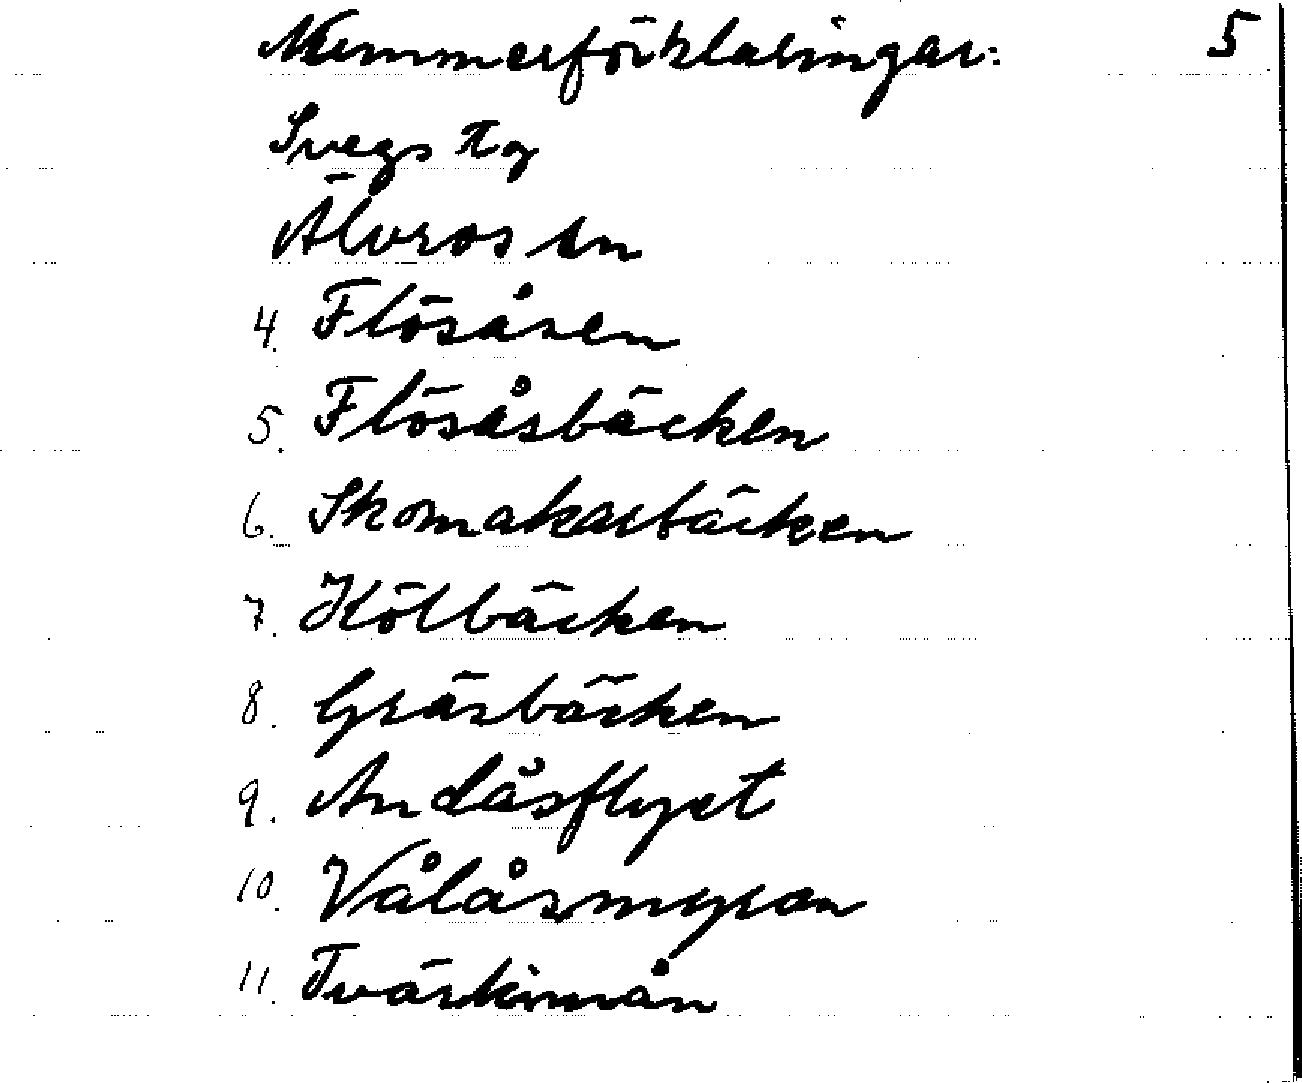 Nummerförklaringar: 5
Svegs tg
Älvros sn
4. Flösåsen
5. Flösåsbäcken
6. Skomakarbäcken
7. Kölbäcken
8. Gräsbäcken
9. Andåsflyet
10. Vålåsmyran
11. Tvärkinnån